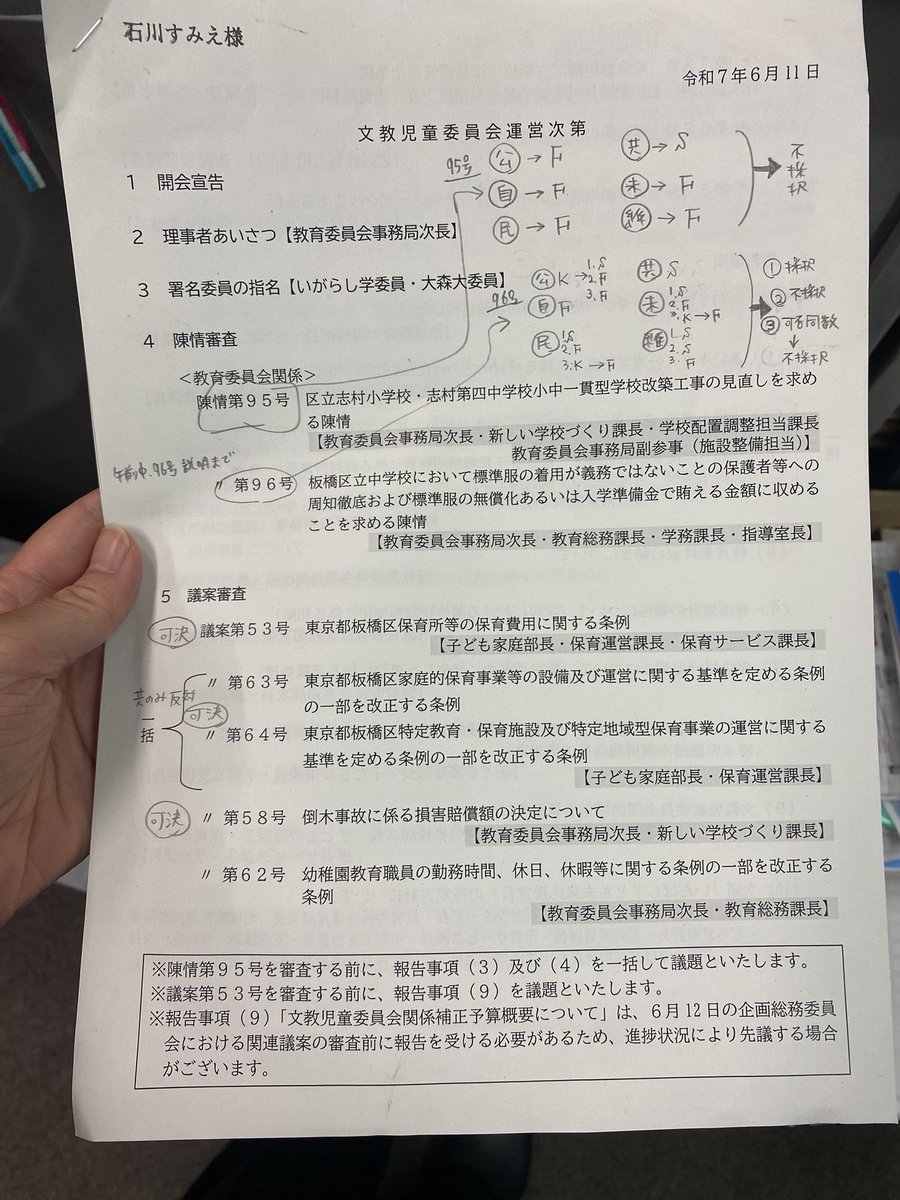 石川すみえ様
令和7年6月11日
文教児童委員会運営次第
95号 公→F 共→S
自→F 未→F
民→F 維→F
不採択
1 開会宣告
2 理事者あいさつ【教育委員会事務局次長】
3 署名委員の指名【いがらし学委員・大森大委員】
96号 公 K→ 1.S 2.F 3.F 共 S
自 F 未 1.S 2.F 3.K→F
民 1.S 2.F 3.K→F 維 1.S 2.S 3.F
①採択
②不採択
③可否同数
↓
不採択
4 陳情審査
<教育委員会関係>
陳情第95号 区立志村小学校・志村第四中学校小中一貫型学校改築工事の見直しを求め
る陳情
【教育委員会事務局次長・新しい学校づくり課長・学校配置調整担当課長
教育委員会事務局副参事(施設整備担当)】
午前中、96号説明まで
〃 第96号 板橋区立中学校において標準服の着用が義務ではないことの保護者等への
周知徹底および標準服の無償化あるいは入学準備金で賄える金額に収める
ことを求める陳情
【教育委員会事務局次長・教育総務課長・学務課長・指導室長】
5 議案審査
可決 議案第53号 東京都板橋区保育所等の保育費用に関する条例
【子ども家庭部長・保育運営課長・保育サービス課長】
〃 第63号 東京都板橋区家庭的保育事業等の設備及び運営に関する基準を定める条例
の一部を改正する条例
共のみ反対
一括
可決
〃 第64号 東京都板橋区特定教育・保育施設及び特定地域型保育事業の運営に関する
基準を定める条例の一部を改正する条例
【子ども家庭部長・保育運営課長】
可決 〃 第58号 倒木事故に係る損害賠償額の決定について
【教育委員会事務局次長・新しい学校づくり課長】
〃 第62号 幼稚園教育職員の勤務時間、休日、休暇等に関する条例の一部を改正する
条例
【教育委員会事務局次長・教育総務課長】
※陳情第95号を審査する前に、報告事項(3)及び(4)を一括して議題といたします。
※議案第53号を審査する前に、報告事項(9)を議題といたします。
※報告事項(9)「文教児童委員会関係補正予算概要について」は、6月12日の企画総務委員
会における関連議案の審査前に報告を受ける必要があるため、進捗状況により先議する場合
がございます。